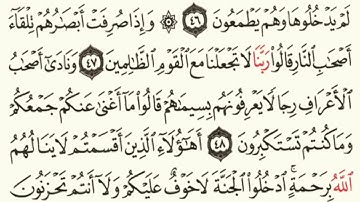 لَمْ يَدْخُلُوهَا وَهُمْ يَطْمَعُونَ ٤٦ ۞ وَإِذَا صُرِفَتْ أَبْصَٰرُهُمْ تِلْقَآءَ
أَصْحَٰبِ ٱلنَّارِ قَالُوا۟ رَبَّنَا لَا تَجْعَلْنَا مَعَ ٱلْقَوْمِ ٱلظَّٰلِمِينَ ٤٧ وَنَادَىٰٓ أَصْحَٰبُ
ٱلْأَعْرَافِ رِجَالًا يَعْرِفُونَهُم بِسِيمَىٰهُمْ قَالُوا۟ مَآ أَغْنَىٰ عَنكُمْ جَمْعُكُمْ
وَمَا كُنتُمْ تَسْتَكْبِرُونَ ٤٨ أَهَٰٓؤُلَآءِ ٱلَّذِينَ أَقْسَمْتُمْ لَا يَنَالُهُمُ
ٱللَّهُ بِرَحْمَةٍ ۚ ٱدْخُلُوا۟ ٱلْجَنَّةَ لَا خَوْفٌ عَلَيْكُمْ وَلَآ أَنتُمْ تَحْزَنُونَ